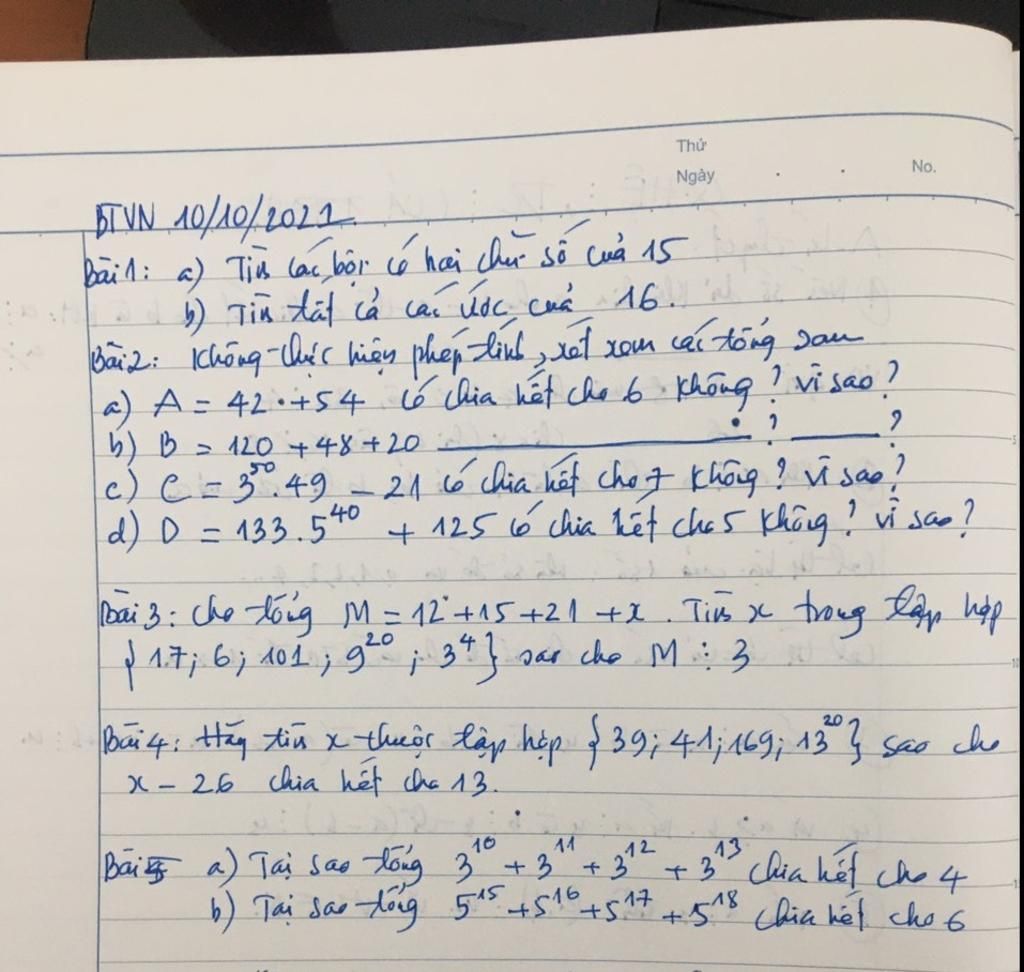 Thứ
Ngày . . No.
BTVN 10/10/2021
Bài 1: a) Tìm các bội có hai chữ số của 15
b) Tìm tất cả các ước của 16.
Bài 2: Không thực hiện phép tính, xét xem các tổng sau
a) A = 42 + 54 có chia hết cho 6 không? vì sao?
b) B = 120 + 48 + 20 ________ ? ____ ?
c) C = 3⁵⁰.49 - 21 có chia hết cho 7 không? vì sao?
d) D = 133.5⁴⁰ + 125 có chia hết cho 5 không? vì sao?
Bài 3: Cho tổng M = 12 + 15 + 21 + x. Tìm x trong tập hợp
{17; 6; 101; 9²⁰; 3⁴} sao cho M ⋮ 3
Bài 4: Hãy tìm x thuộc tập hợp {39; 41; 169; 13²⁰} sao cho
x - 26 chia hết cho 13.
Bài 5 a) Tại sao tổng 3¹⁰ + 3¹¹ + 3¹² + 3¹³ chia hết cho 4
b) Tại sao tổng 5¹⁵ + 5¹⁶ + 5¹⁷ + 5¹⁸ chia hết cho 6